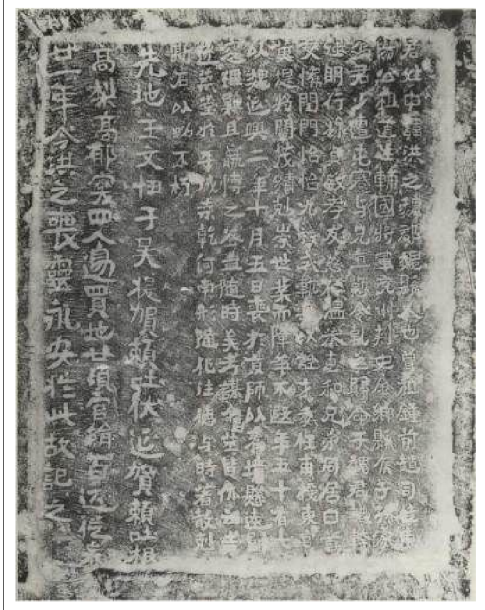 君姓申諱洪之魏郡魏縣人也曾祖鍾前趙司徒東
陽公祖道生輔國將軍兗州刺史金鄉縣侯子孫家
焉君少遭屯蹇與兄直懃令乾之歸命於魏君識幹
強明行操貞敏孝友慈仁溫恭惠和兄弟同居白首
交歡閨門怡怡九族式軌是以詮才委任甫授東宮
莫堤將闡茂績剋崇世業而降年不遐年五十有七
以魏延興二年十月五日喪於京師以舊墳懸遠歸
窆理難且嬴博之葬蓋隨時矣考謀龜筮皆稱云吉
遂築堂於平城桑乾河南形隨化往德與時著敢剋
斯石以昭不朽
先地主文忸于吳提賀賴吐伏延賀賴吐根
高梨高郁突四人邊買地廿頃官絹百匹從來
廿一年今洪之喪靈永安於此故記之